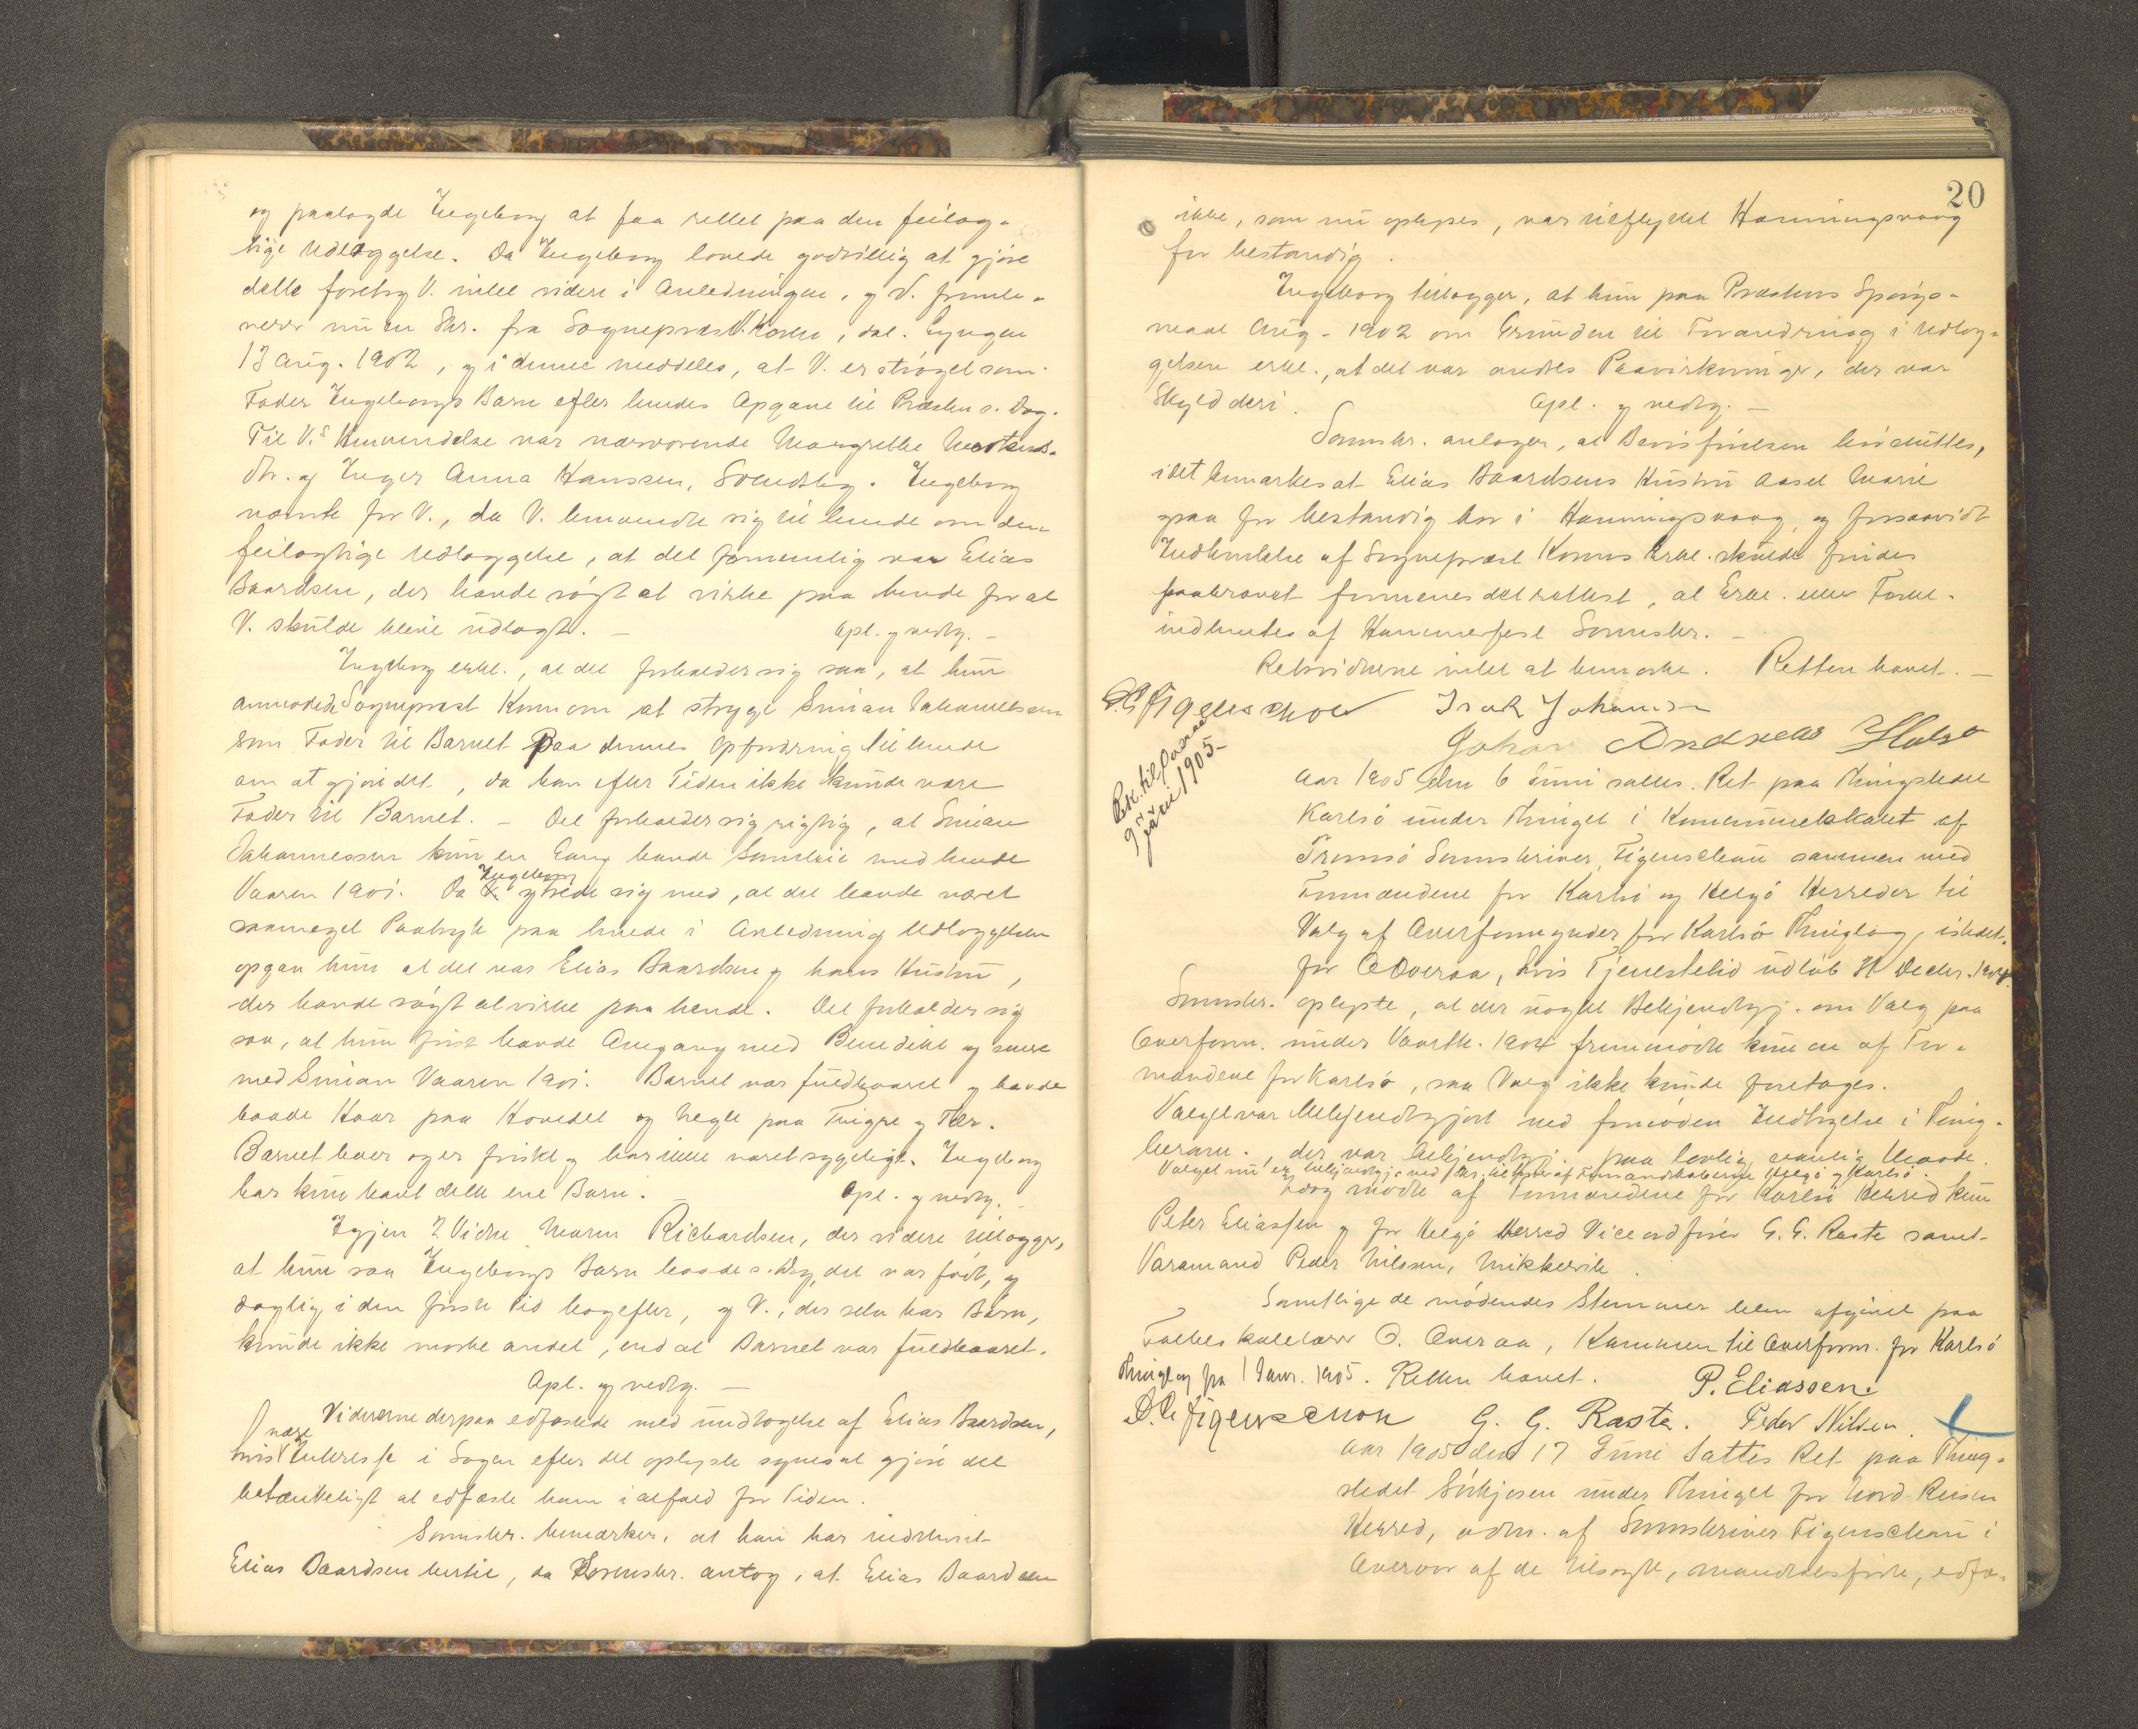 og paalagde Ingeborg at faa rettet paa den feilag-
tige Udlæggelse. Da Ingeborg lovede godvillig at gjøre
dette foretog V. intet videre i Anledningen, og V. fremle-
verer nu en Skr. fra Sognepræst Koren, dat. Lyngen
13 Aug. 1902, og i denne meddeles, at V. er strøget som
Fader Ingeborgs Barn efter hendes Opgave til Præsten s. Dag.
Til V.s Henvendelse var nærværende Margrethe
Dtr. og Inger Anna Hanssen, Svendsby. Ingeborg
nævnte for V., da V. henvendte sig til hende om den
feilagtige Udlæggelse, at det fornemlig var Elias
Baardsen, der havde søgt at virke paa hende for at
V. skulde blive udlagt. — Opl. og vedtg. —
Ingeborg erkl., at det forholder sig saa, at hun
anmodede Sognepræst Koren om at stryge Simian Johannessen
som Fader til Barnet paa dennes Opfordring til hende
om at gjøre det, da han efter Tiden ikke kunde være
Fader til Barnet. — Det forholder sig rigtig, at Simian
Johannessen kun en Gang havde Samleie med hende
Vaaren 1901. Da Ingeborg ytrede sig med, at det havde været
saameget Paatryk paa hende i Anledning Udlæggelsen
opgav hun at det var Elias Baardsen og hans Hustru,
der havde søgt at virke paa hende. Det forholder sig
saa, at hun først havde Omgang med Benedikt og senere
med Simian Vaaren 1901. Barnet var fuldbaaret og havde
baade Haar paa Hovedet og Negle paa Fingre og Tær.
Barnet lever og er friskt og har ikke været sygeligt. Ingeborg
har kun havt dette ene Barn. — Opl. og vedtg. —
Igjen 2 Vidne Maren Richardsen, der videre tillægger,
at hun saa Ingeborgs Barn baade s. Dag, det var født, og
daglig i den første Tid bagefter, og V., der selv har Børn,
kunde ikke mærke andet, end at Barnet var fuldbaaret.
Opl. og vedtg. —
Vidnerne derpaa edfæstede med Undtagelse af Elias Baardsen,
hvis nære Interesse i Sagen efter det oplyste synes at gjøre det
betænkeligt at edfæste ham i alfald for Tiden.
Sorenskr. bemærker, at han har indstevnet
Elias Baardsen hertil, da Sorenskr. antog, at Elias Baardsen
20
ikke, som nu oplyses, var tilflyttet Honningsvaag
for bestandig.
Ingeborg tillægger, at hun paa Præstens Spørgs-
maal Aug. 1902 om Grunden til Forandring i Udlæg-
gelsen erkl., at det var andres Paavirkninger, der var
Skyld deri. Opl. og vedtg. —
Sorenskr. antager, at Bevisførelsen her sluttes,
idet bemærkes at Elias Baardsens Hustru Aasel Marie
ogsaa for bestandig bor i Honningsvaag, og forsaavidt
Indhentelse af Sognepræst Korens Erkl. skulde findes
paakrævet formenes det rettest, at Erkl. eller Forkl.
indhentes af Hammerfest Sorenskr. —
Retsvidnerne intet at bemærke. Retten hævet. —
D.C. Figenschou Isak Johansen
Johan Andreas
9 juni 1905
Aar 1905 den 6 Juni sattes Ret paa Thingstedet
Karlsø under Thinget i Kommunelokalet af
Tromsø Sorenskriver, Figenschou sammen med
Formændene for Karlsø og Helgø Herreder til
Valg af Overformynder for Karlsø Thinglag, istedet-
for O Overaa, hvis Tjenestetid udløb 31 Decbr. 1904.
Sorenskr. oplyste, at der uagtet Bekjendtgj. om Valg paa
Overform. under Vaarth. 1904 fremmødte kun en af For-
mændene for Karlsø, saa Valg ikke kunde foretages.
Valget var bekjendtgjort ved foruden Indtagelse i Thing-
beram., der var bekjendtgj. paa lovlig vanlig Maade.
Valget nu er bekjendtgj. ved Skr. til hver af Formandskaberne Helgø og Karlsø.
Idag mødte af Formændene for Karlsø Herred kun
Peter Eliassen og for Helgø Herred Viceordfører G. G. Raste samt
Varamand Peder Nilssen, Mikkelvik.
Samtlige de mødendes Stemmer blev afgivet paa
Overaa, Kammen til Overform. for Karlsø
Thinglag fra 1 Janr. 1905. Retten hævet. P. Eliassen.
D.C. Figenschou G. G. Raste. Peder Nilsen.
Aar 1905 den 17 Juni sattes Ret paa Thing-
stedet Sørkjosen under Thinget for Nord-Reisen
Herred, adm. af Sorenskriver Figenschou i
Overvær af de tilsagte, mandtalsførte, edfæ-